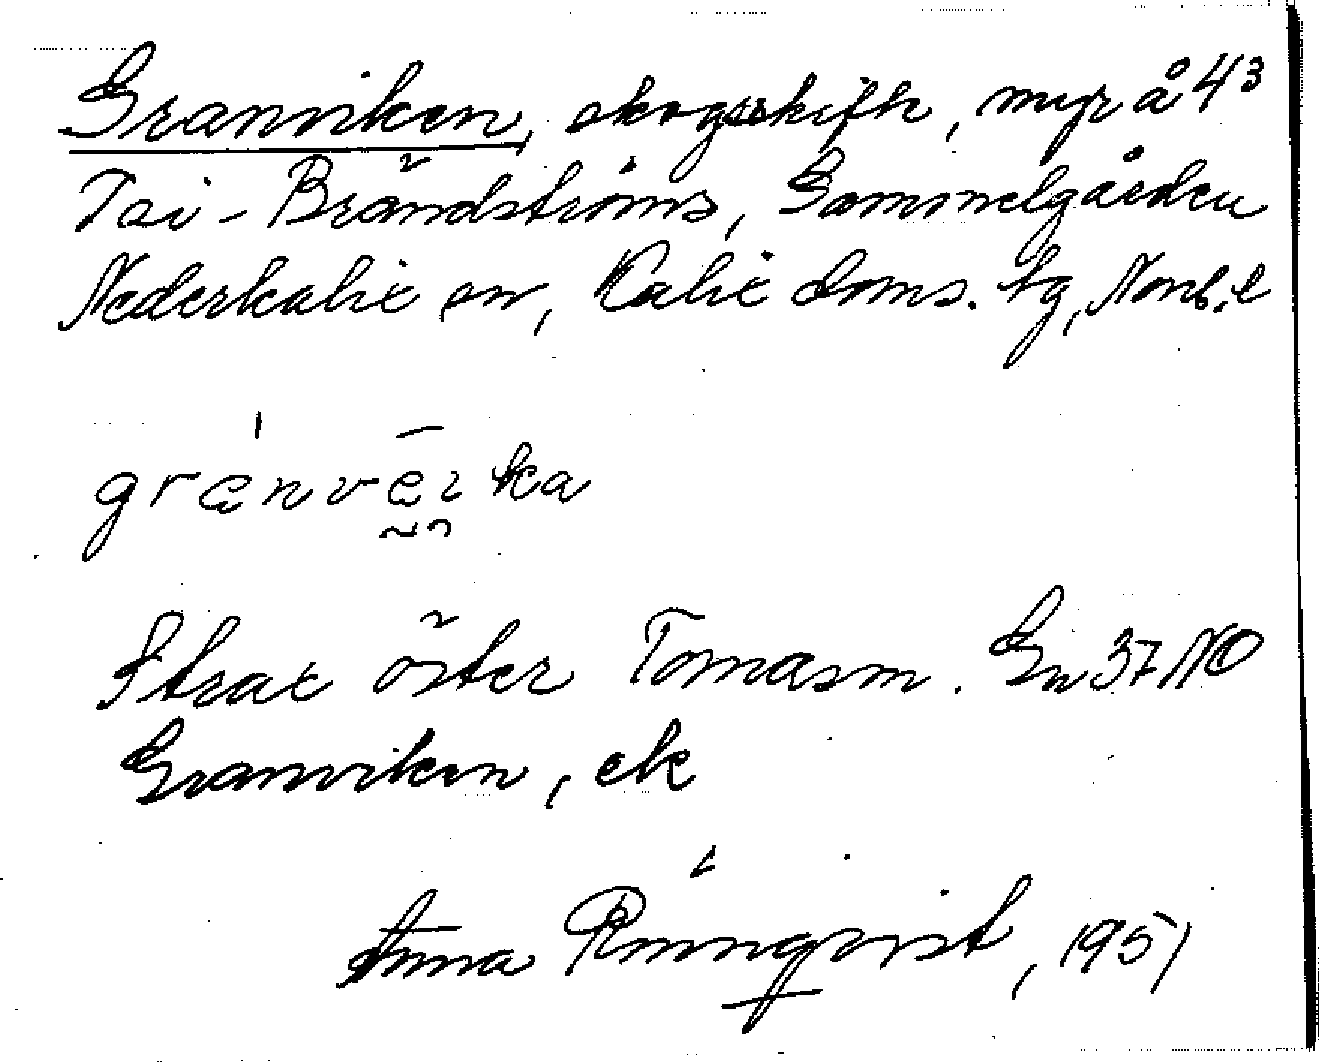 Granviken, skogsskifte, myr å 4³
Toi-Brändströms, Gammelgården
Nederkalix sn, Kalix doms. tg, Norrb. l
granvẹ̄ıka
Strax öster Tomasm. Gn 37 NO
Granviken, ek
Anna Rönnqvist, 1951